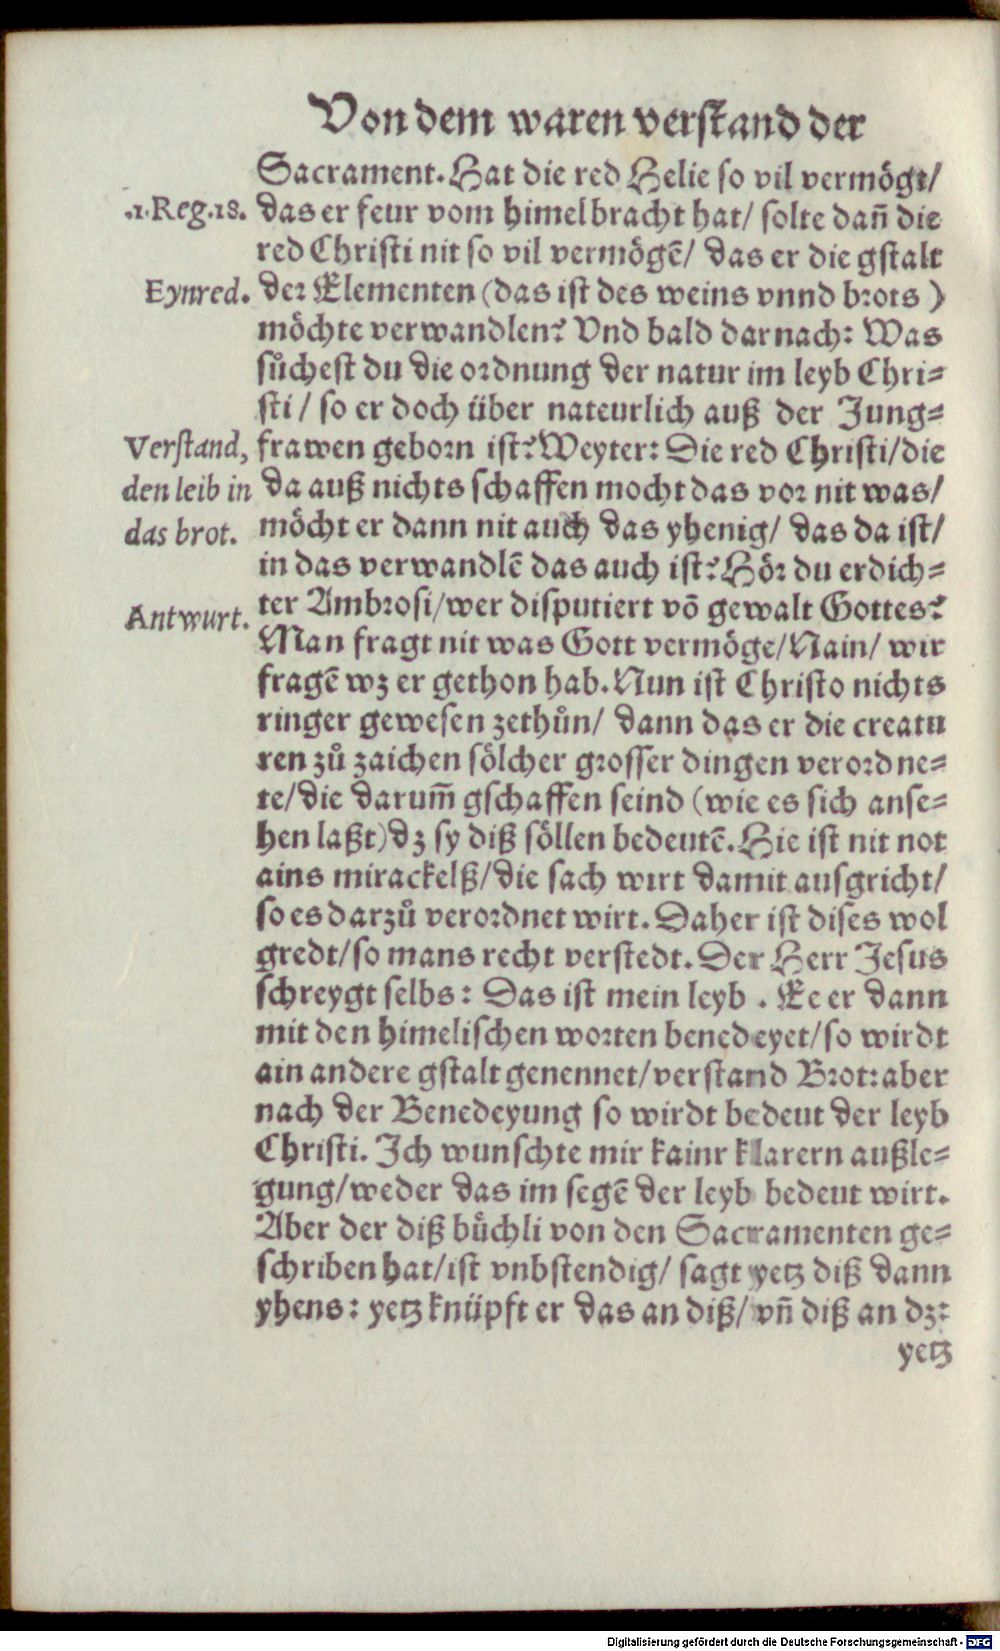 Von dem waren verstand der
Sacrament. Hat die red Helie so vil vermögt/
.1.Reg.18.
das er feur vom himel bracht hat/ solte dañ die
red Christi nit so vil vermögẽ/ das er die gstalt
Eynred.
der Elementen (das ist des weins vnnd brots)
möchte verwandlen? Vnd bald darnach: Was
sůchest du die ordnung der natur im leyb Chri=
sti / so er doch über nateurlich auß der Jung=
Verstand,
frawen geborn ist? Weyter: Die red Christi/die
den leib in
da auß nichts schaffen mocht das vor nit was/
das brot.
möcht er dann nit auch das yhenig/ das da ist/
in das verwandlẽ das auch ist? Hör du erdich=
Antwurt.
ter Ambrosi/wer disputiert võ gewalt Gottes?
Man fragt nit was Gott vermöge/Nain/ wir
fragẽ wz er gethon hab. Nun ist Christo nichts
ringer gewesen zethůn/ dann das er die creatu
ren zů zaichen sölcher grosser dingen verordne=
te/die darum̃ gschaffen seind (wie es sich anse=
hen laßt) dz sy diß söllen bedeutẽ. Hie ist nit not
ains mirackelß/die sach wirt damit ausgricht/
so es darzů verordnet wirt. Daher ist dises wol
gredt/so mans recht verstedt. Der Herr Jesus
schreygt selbs: Das ist mein leyb . Ee er dann
mit den himelischen worten benedeyet/so wirdt
ain andere gstalt genennet/verstand Brot: aber
nach der Benedeyung so wirdt bedeut der leyb
Christi. Ich wunschte mir kainr klarern außle=
gung/weder das im segẽ der leyb bedeut wirt.
Aber der diß bůchli von den Sacramenten ge=
schriben hat/ist vnbstendig/ sagt yetz diß dann
yhens: yetz knüpft er das an diß/ vñ diß an dz:
yetz
Digitalisierung gefördert durch die Deutsche Forschungsgemeinschaft - DFG